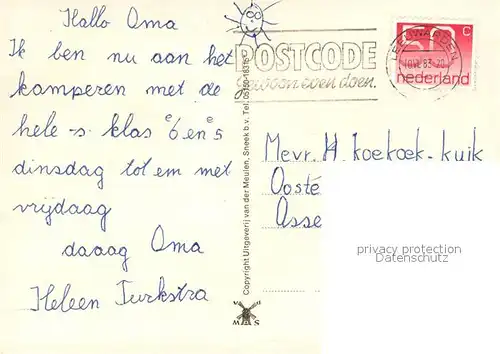 Hallo Oma
Ik ben nu aan het
kamperen met de
hele -s- klas 6e en 5e
dinsdag tot em met
vrijdaag
daaag Oma
Heleen Turkstra
Copyright Uitgeverij van der Meulen, Sneek b.v. Tel.: 05150-18316
MAS
POSTCODE
gewoon even doen.
LEEUWARDEN
83-20
C
nederland
Mevr. H. koekoek-kuik
Ooste
Asse
privacy protection
Datenschutz